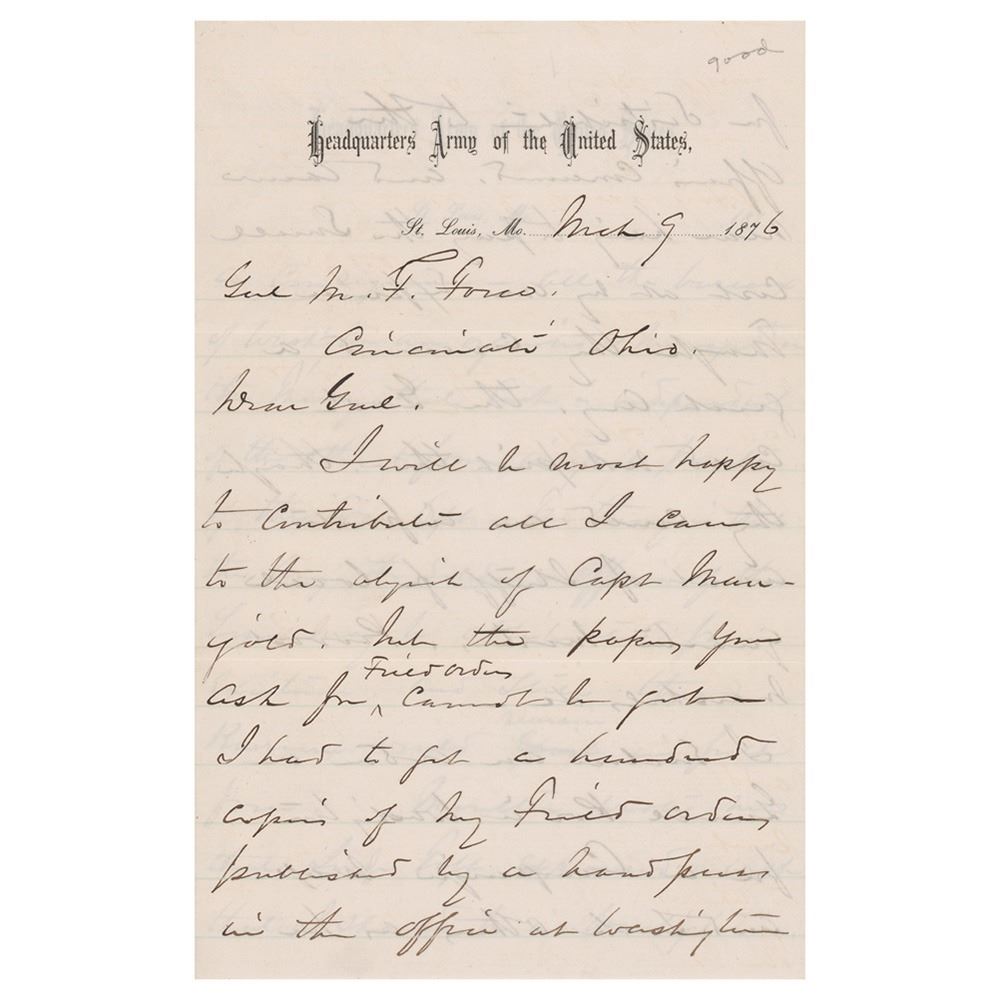 good
Headquarters Army of the United States,
St. Louis, Mo. Mch 9 1876
Genl M. F. Force.
Cincinati Ohio.
Dear Genl.
I will be most happy
to contribute all I can
to the object of Capt Man-
gold. but the papers you
Field orders
ask for ^ cannot be gotten
I had to get a hundred
copies of my Field orders
published by a hand press
in the office at Washington